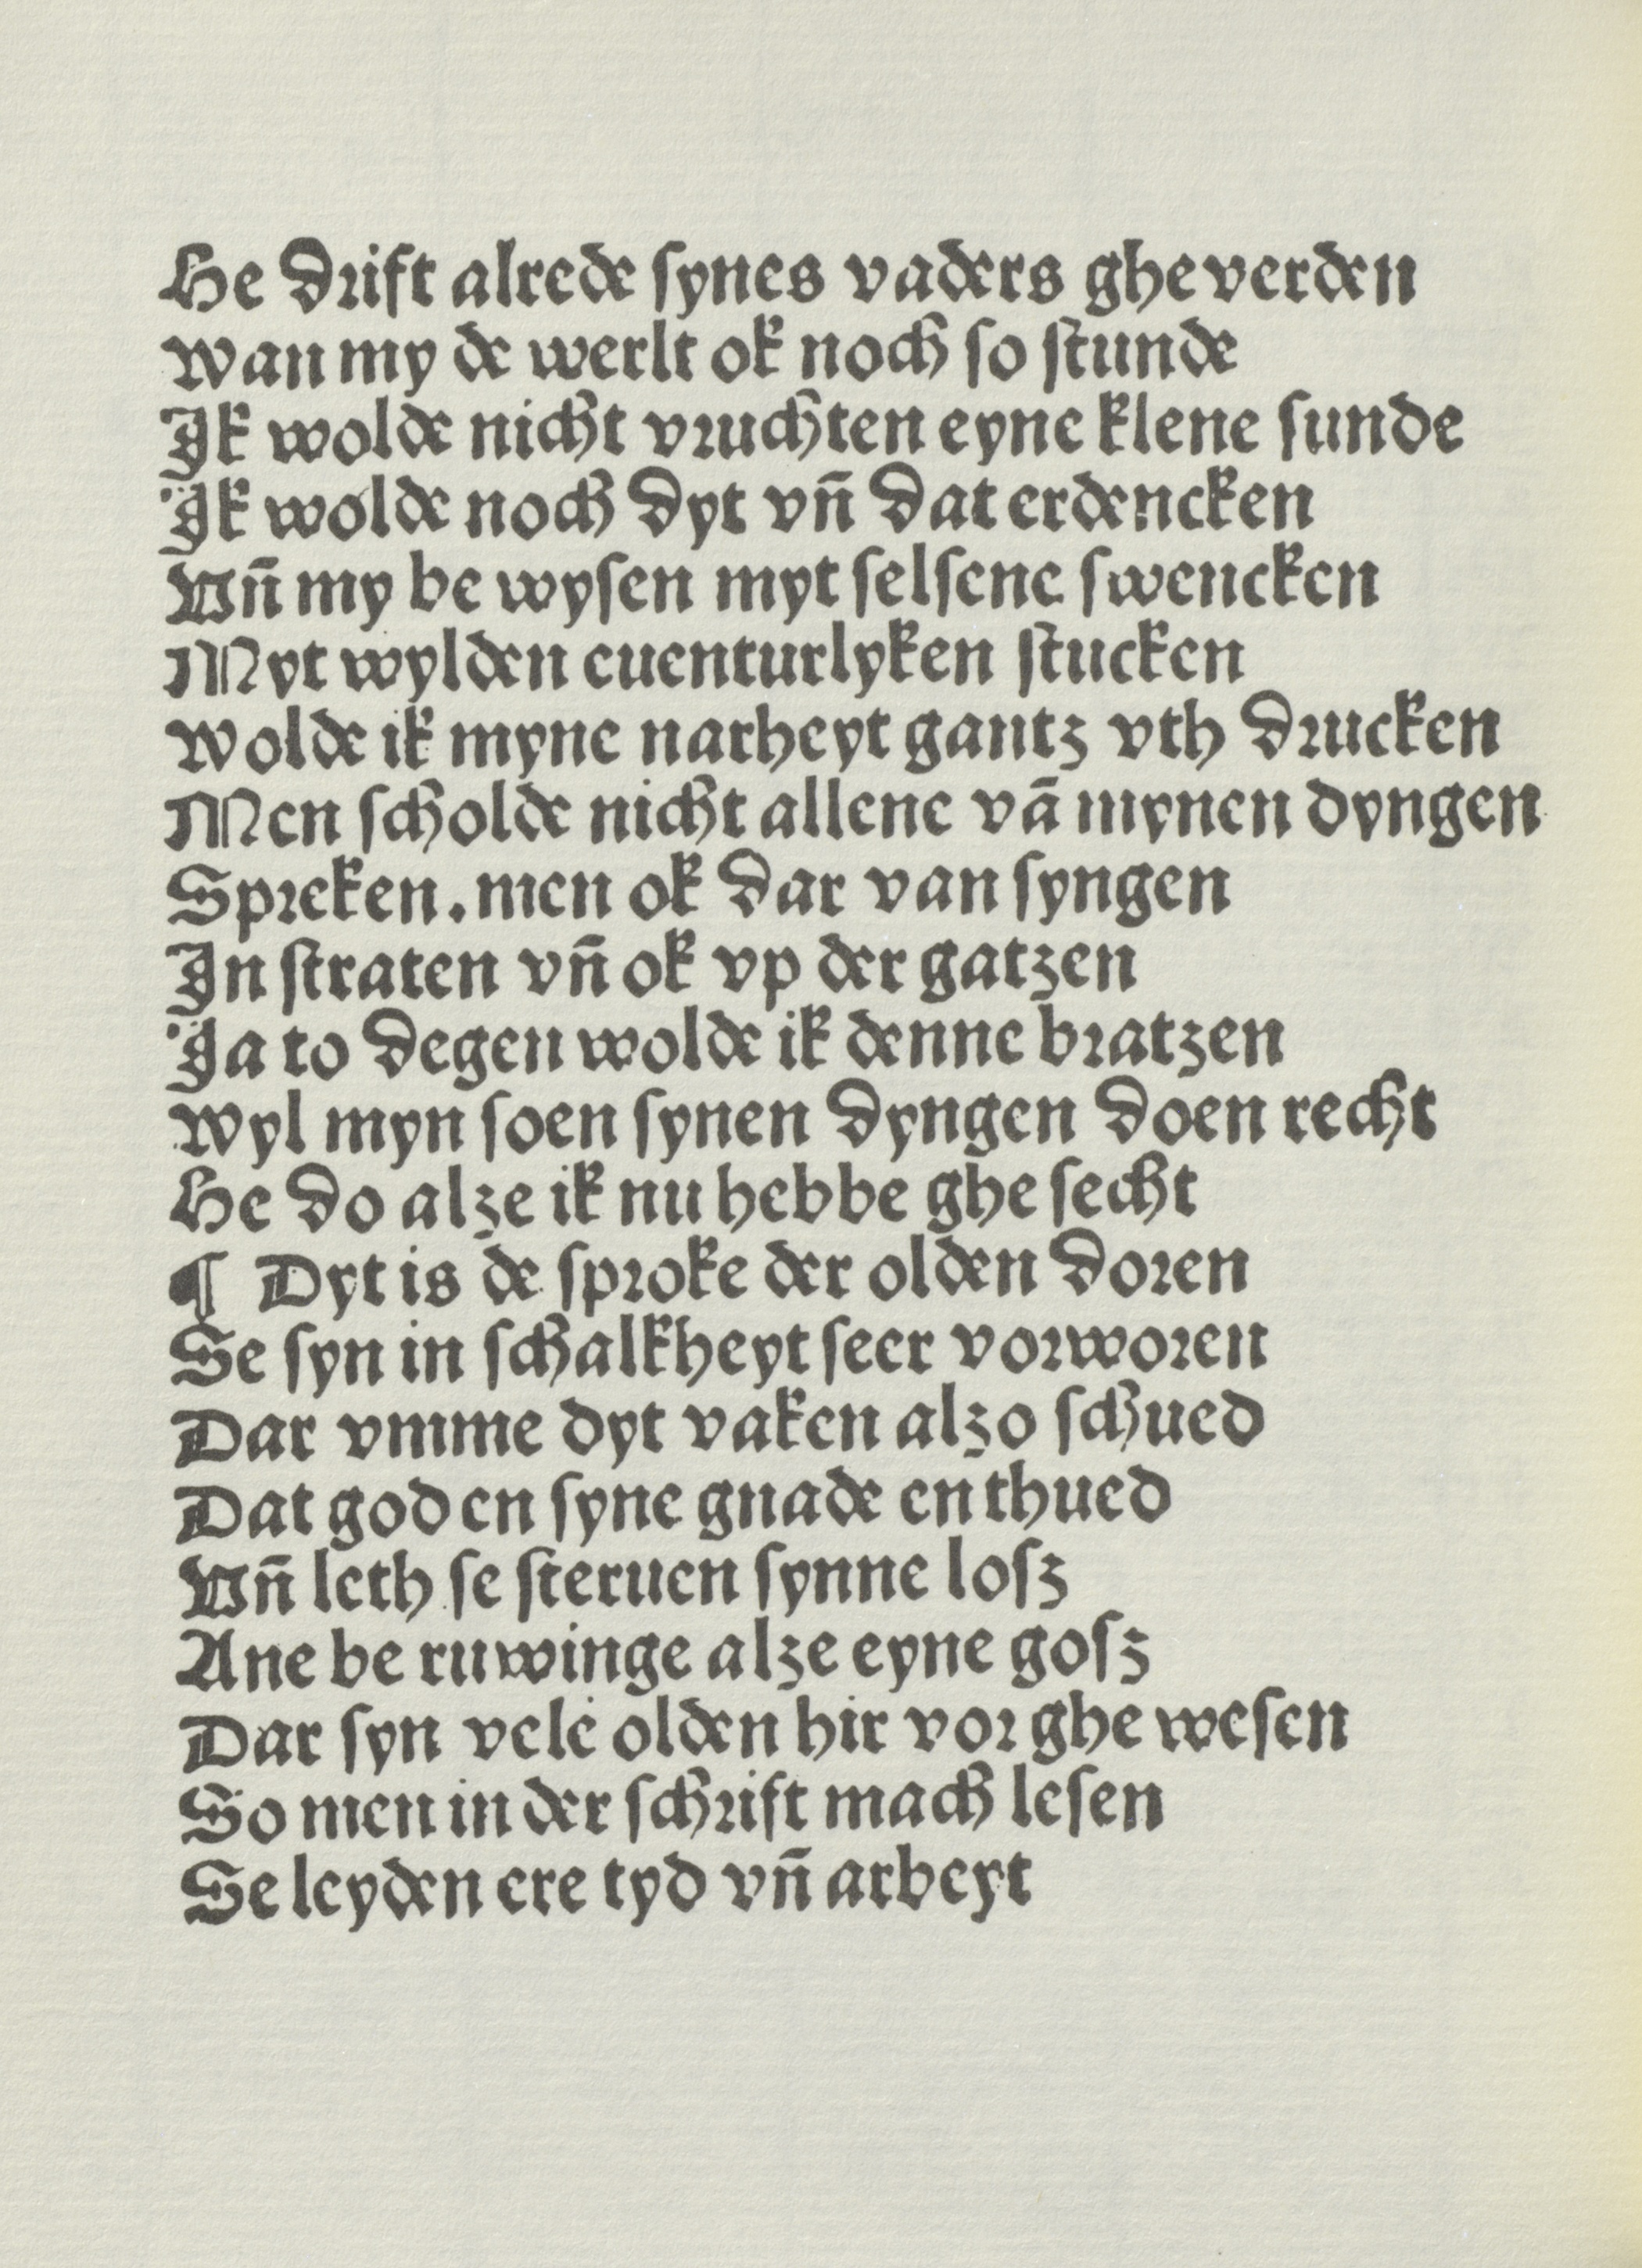 He drift alrede ſynes vaders ghe verden
Wan my de werlt ok noch ſo ſtunde
Ik wolde nicht vruchten eyne klene ſunde
Ik wolde noch dyt vn̄ dat erdencken
Vn̄ my be wyſen myt ſelſene ſwencken
Myt wylden euenturlyken ſtucken
Wolde ik myne narheyt gantz vth drucken
Men ſcholde nicht allene vā mynen dyngen
Spreken. men ok dar van ſyngen
In ſtraten vn̄ ok vp der gatzen
Ja to degen wolde ik denne bratzen
Wyl myn ſoen ſynen dyngen doen recht
He do alze ik nu hebbe ghe ſecht
¶ Dyt is de ſproke der olden doren
Se ſyn in ſchalkheyt ſeer vorworen
Dar vmme dyt vaken alzo ſchued
Dat god en ſyne gnade en thued
Vn̄ leth ſe ſteruen ſynne loſz
Ane be ruwinge alze eyne goſz
Dar ſyn vele olden hir vor ghe weſen
So men in der ſchrift mach leſen
Se leyden ere tyd vn̄ arbeyt